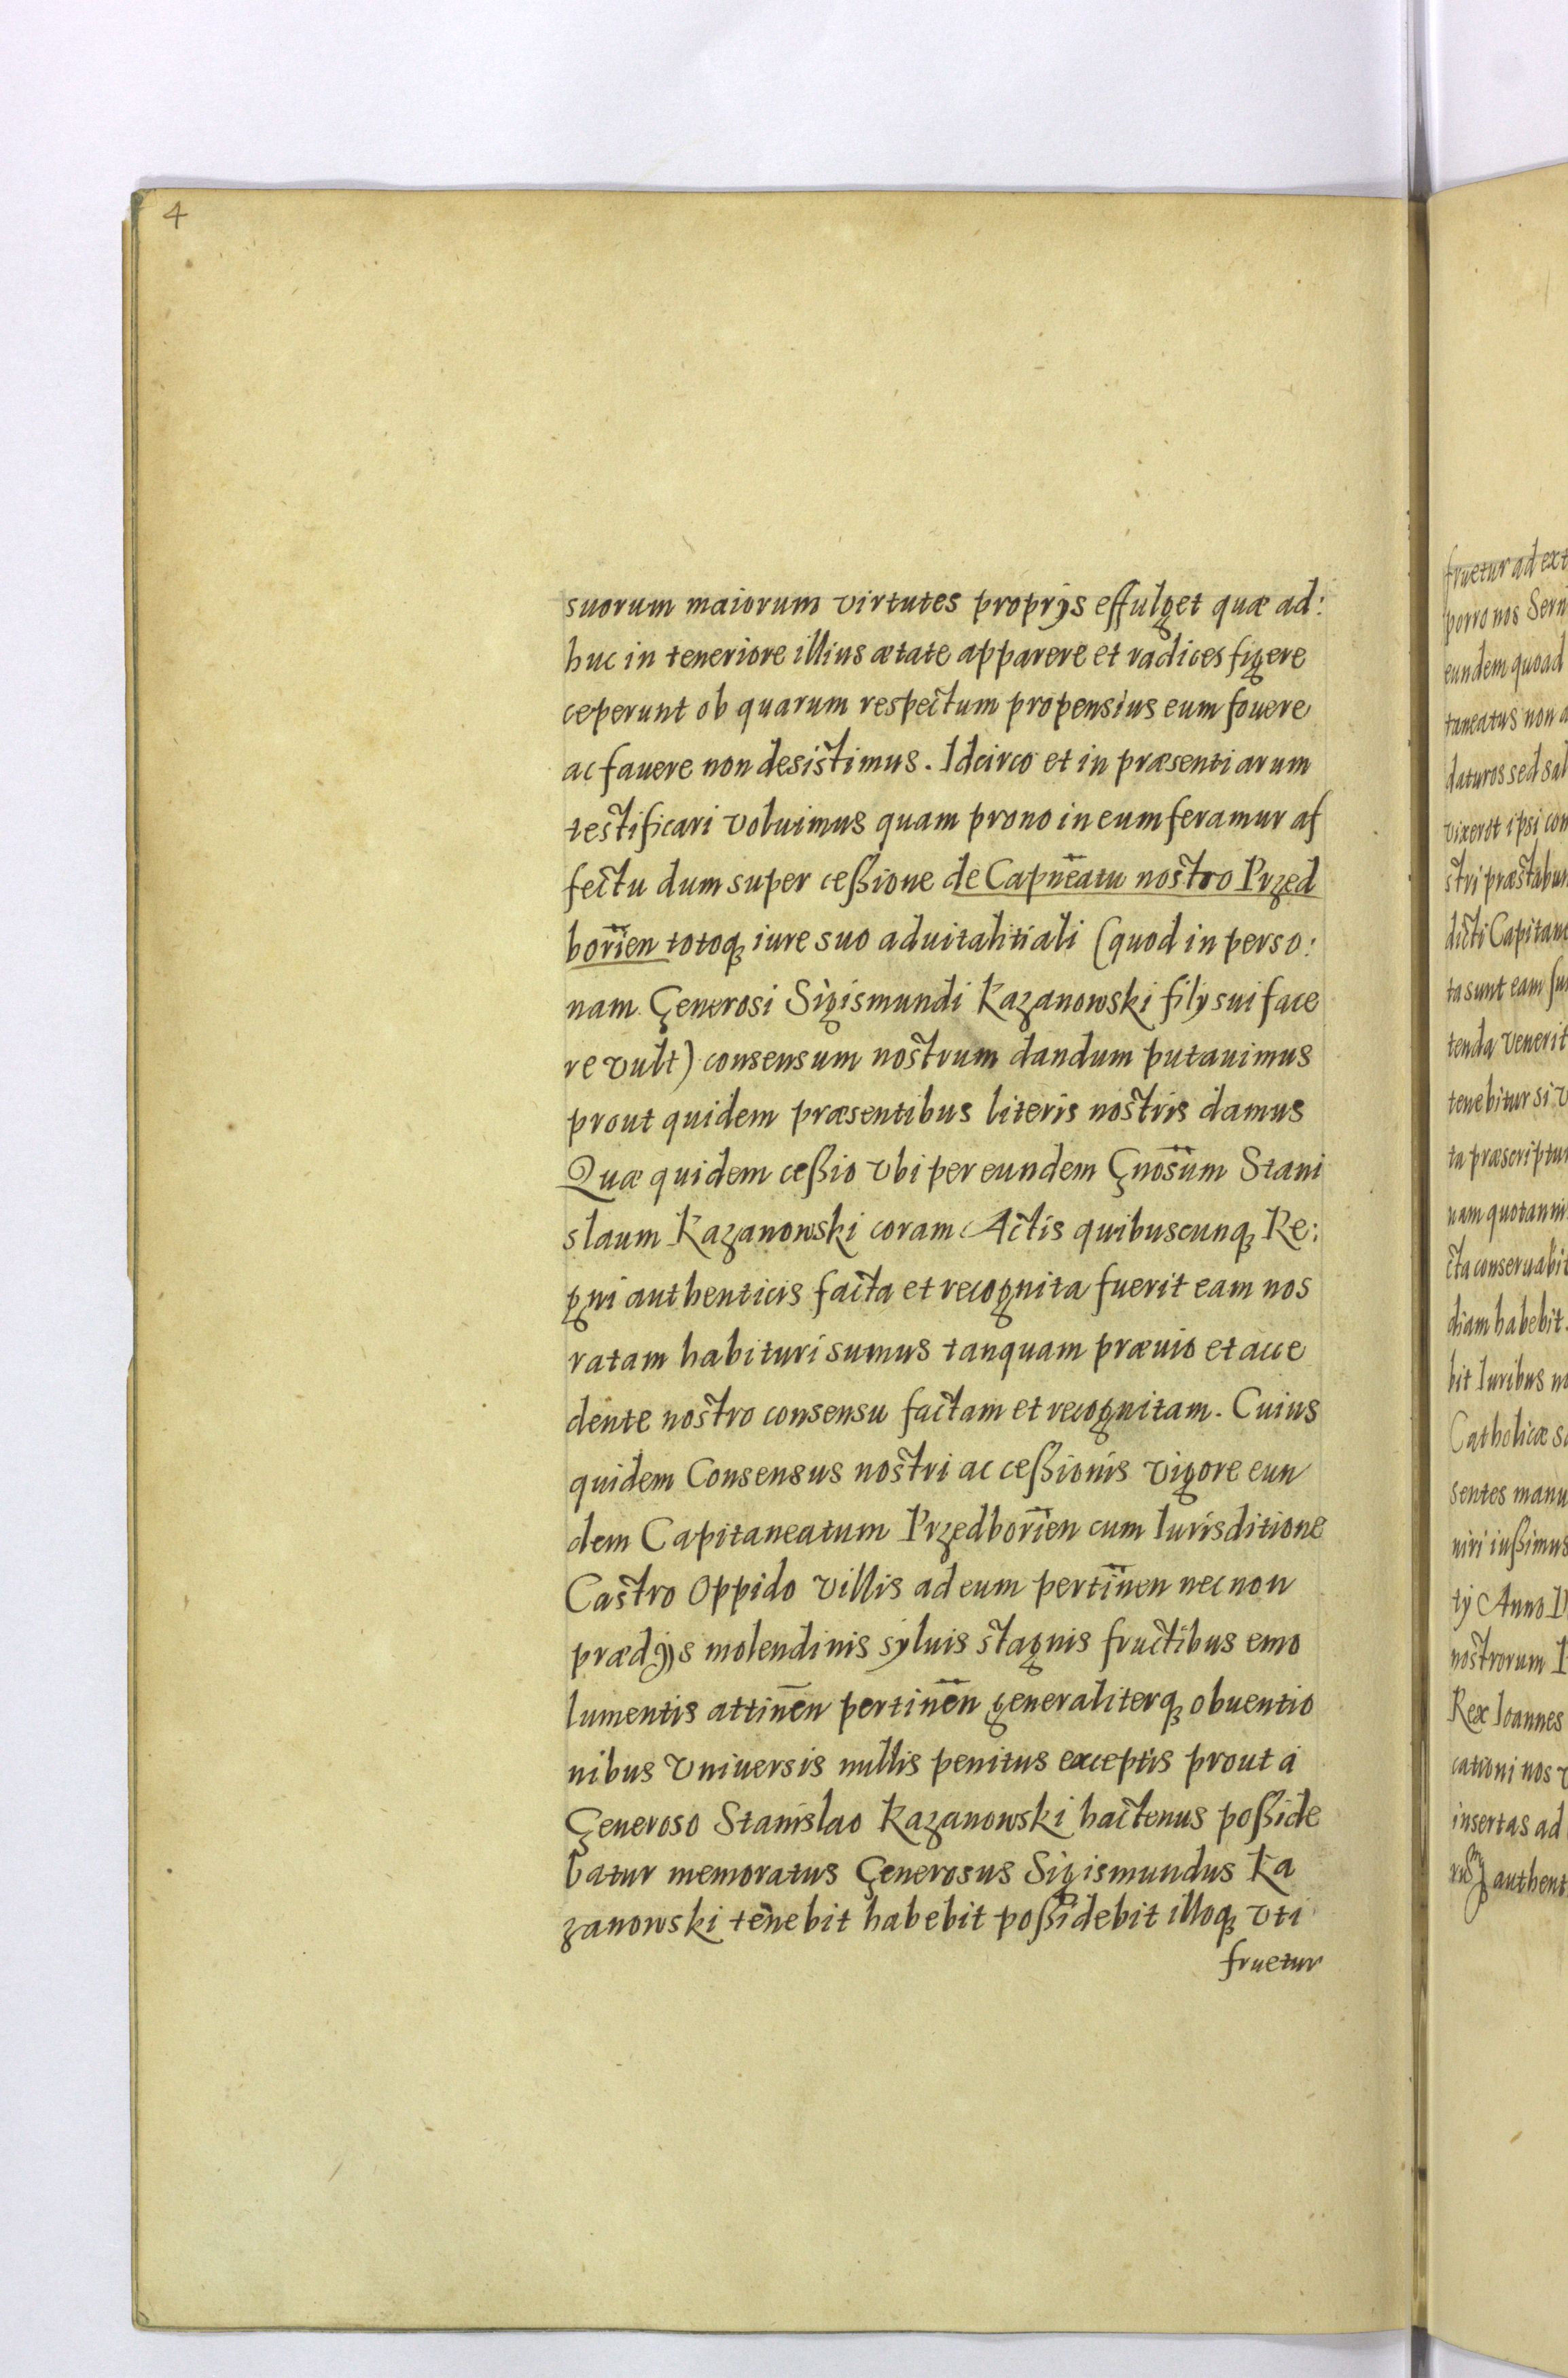 4
suorum maiorum virtutes proprijs effulget quæ ad:
huc in teneriore illius ætate apparere et radices figere
ceperunt ob quarum respectum propensius eum fouere
ac fauere non desistimus. Idcirco et in præsentiarum
testificari voluimus quam prono in eum feramur af
fectu dum super ceßione de Capn̄eatu nostro Przed
borien̄ totoq̧ iure suo aduitalitiali (quod in perso:
nam Generosi Sigismundi Kazanowski filij sui face
re vult) consensum nostrum dandum putauimus
prout quidem præsentibus literis nostris damus
Quæ quidem ceßio vbi per eundem Gnos̄um Stani
slaum Kazanowski coram Actis quibuscunq̧ Re:
gni authenticis facta et recognita fuerit eam nos
ratam habituri sumus tanquam præuio et acce
dente nostro consensu factam et recognitam. Cuius
quidem Consensus nostri ac ceßionis vigore eun
dem Capitaneatum Przedborien̄ cum Iurisditione
Castro Oppido villis ad eum pertinen̄ nec non
prædijs molendinis syluis stagnis fructibus emo
lumentis attinen̄ pertinen̄ generaliterq̧ obuentio
nibus vniuersis nullis penitus exceptis prout á
Generoso Stanislao Kazanowski hactenus poßide
batur memoratus Generosus Sigismundus Ka
zanowski tenebit habebit poßidebit illoq̧ vti
fruetur
fruetur ad ext
porro nos Sern
eundem quoad
taneatus non a
daturos sed sal
vixerit ipsi con
stri præstabun
dicti Capitane
ta sunt eam su
tenda venerit
tenebitur si v
ta præscriptu
nam quotanni
cta conseruabit
diam habebit.
bit Iuribus no
Catholicæ s
sentes manu
niri iußimus
tij Anno D
nostrorum P
Rex Ioannes
cationi nos
insertas ad
authent